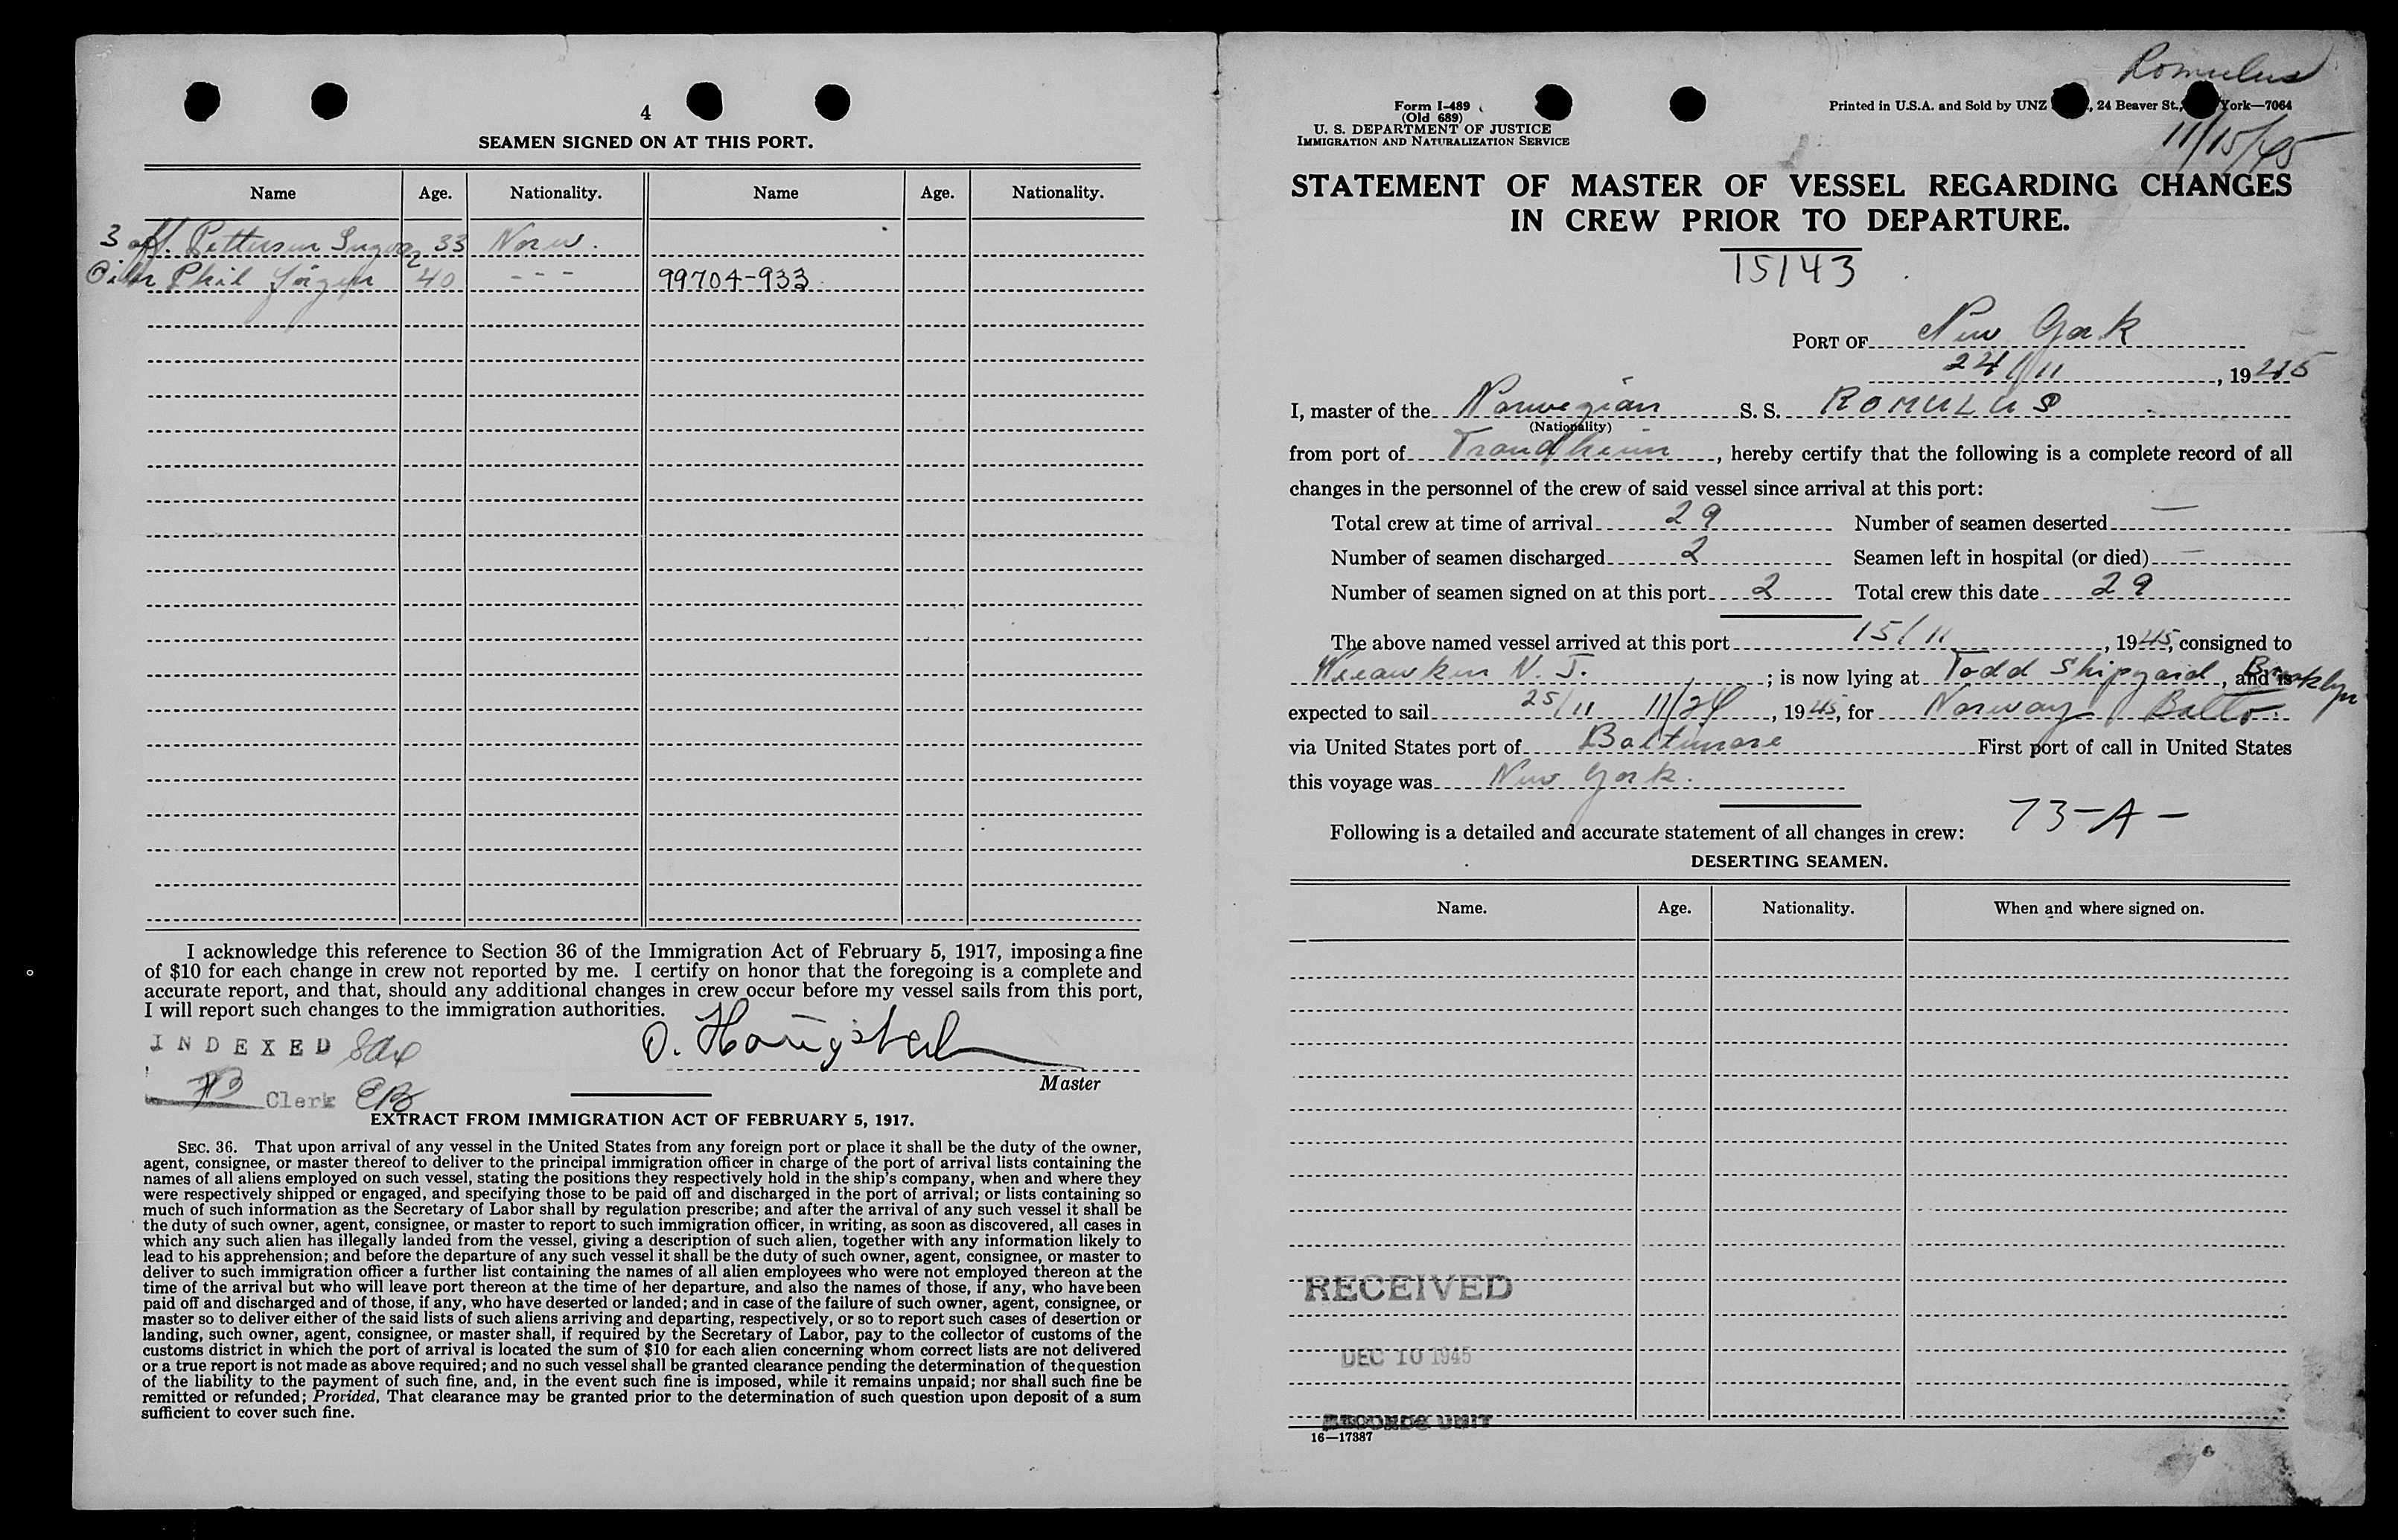 4
SEAMEN SIGNED ON AT THIS PORT.
Name Age. Nationality. Name Age. Nationality.
3 off. Pettersen Ingvar 33 Norw.
Oiler Phil Jörgen 40 - - - 99704-933
I acknowledge this reference to Section 36 of the Immigration Act of February 5, 1917, imposing a fine
of $10 for each change in crew not reported by me. I certify on honor that the foregoing is a complete and
accurate report, and that, should any additional changes in crew occur before my vessel sails from this port,
I will report such changes to the immigration authorities.
INDEXED
O.
Master
Clerk EB
EXTRACT FROM IMMIGRATION ACT OF FEBRUARY 5, 1917.
SEC. 36. That upon arrival of any vessel in the United States from any foreign port or place it shall be the duty of the owner,
agent, consignee, or master thereof to deliver to the principal immigration officer in charge of the port of arrival lists containing the
names of all aliens employed on such vessel, stating the positions they respectively hold in the ship's company, when and where they
were respectively shipped or engaged, and specifying those to be paid off and discharged in the port of arrival; or lists containing so
much of such information as the Secretary of Labor shall by regulation prescribe; and after the arrival of any such vessel it shall be
the duty of such owner, agent, consignee, or master to report to such immigration officer, in writing, as soon as discovered, all cases in
which any such alien has illegally landed from the vessel, giving a description of such alien, together with any information likely to
lead to his apprehension; and before the departure of any such vessel it shall be the duty of such owner, agent, consignee, or master to
deliver to such immigration officer a further list containing the names of all alien employees who were not employed thereon at the
time of the arrival but who will leave port thereon at the time of her departure, and also the names of those, if any, who have been
paid off and discharged and of those, if any, who have deserted or landed; and in case of the failure of such owner, agent, consignee, or
master so to deliver either of the said lists of such aliens arriving and departing, respectively, or so to report such cases of desertion or
landing, such owner, agent, consignee, or master shall, if required by the Secretary of Labor, pay to the collector of customs of the
customs district in which the port of arrival is located the sum of $10 for each alien concerning whom correct lists are not delivered
or a true report is not made as above required; and no such vessel shall be granted clearance pending the determination of the question
of the liability to the payment of such fine, and, in the event such fine is imposed, while it remains unpaid; nor shall such fine be
remitted or refunded; Provided, That clearance may be granted prior to the determination of such question upon deposit of a sum
sufficient to cover such fine.
Romulus
Form I-489
(Old 689)
U. S. DEPARTMENT OF JUSTICE
IMMIGRATION AND NATURALIZATION SERVICE
Printed in U.S.A. and Sold by UNZ , 24 Beaver St., York—7064
11/15/45
STATEMENT OF MASTER OF VESSEL REGARDING CHANGES
IN CREW PRIOR TO DEPARTURE.
15143
PORT OF New York
24/11, 1945
I, master of the Norwegian S. S. ROMULUS
(Nationality)
from port of Trondheim, hereby certify that the following is a complete record of all
changes in the personnel of the crew of said vessel since arrival at this port:
Total crew at time of arrival 29 Number of seamen deserted —
Number of seamen discharged 2 Seamen left in hospital (or died) —
Number of seamen signed on at this port 2 Total crew this date 29
The above named vessel arrived at this port 15/11, 1945, consigned to
Weeawken N. J.; is now lying at Todd Shipyard, Brooklyn and is
expected to sail 25/11 11/24, 1945, for Norway Balto.
via United States port of Baltimore First port of call in United States
this voyage was New York.
73-A-
Following is a detailed and accurate statement of all changes in crew:
DESERTING SEAMEN.
Name. Age. Nationality. When and where signed on.
RECEIVED
DEC 10 1945
RECORDS UNIT
16—17387